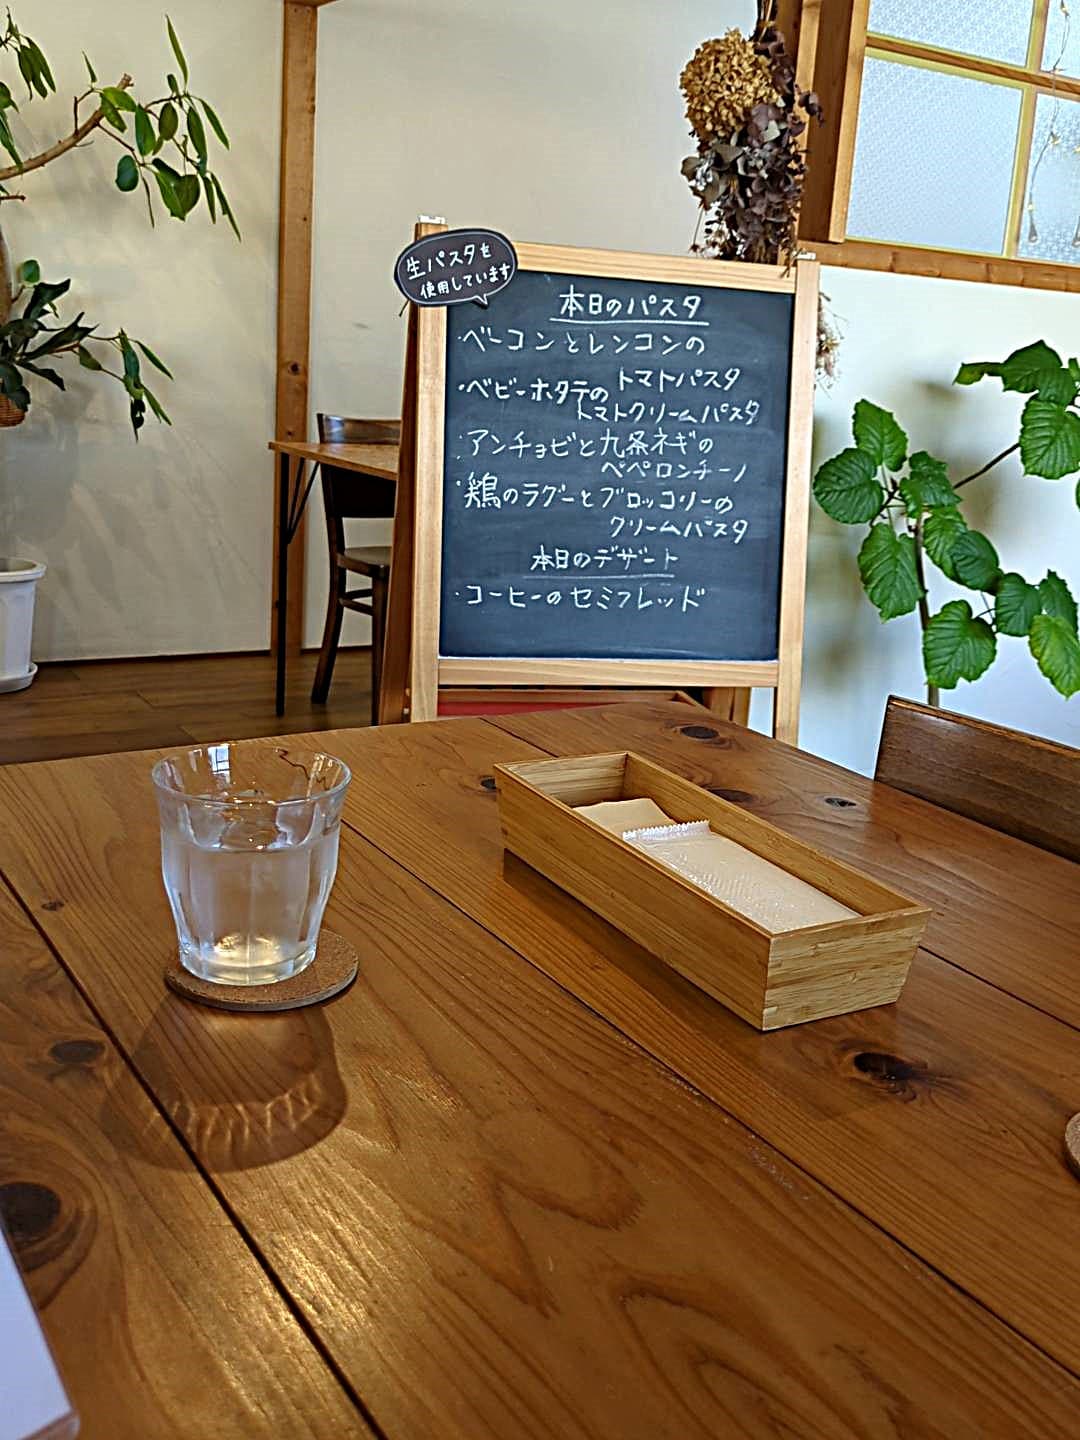 生パスタを
使用しています
本日のパスタ
・ベーコンとレンコンの
トマトパスタ
・ベビーホタテの
トマトクリームパスタ
・アンチョビと九条ネギの
ペペロンチーノ
・鶏のラグーとブロッコリーの
クリームパスタ
本日のデザート
・コーヒーのセミフレッド